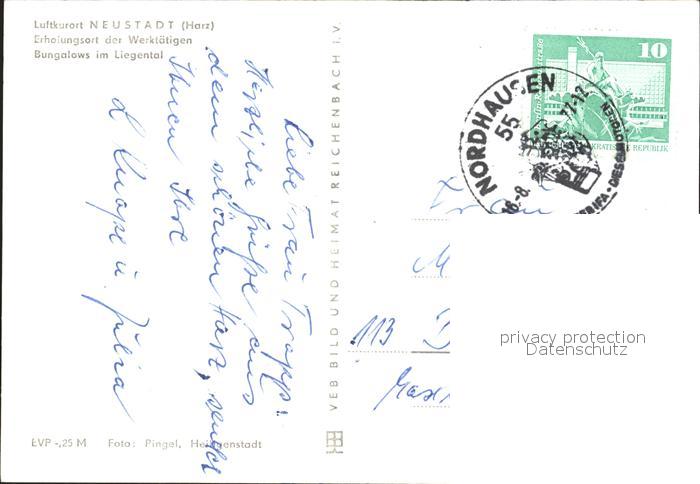 Luftkurort NEUSTADT (Harz)
Erholungsort der Werktätigen
Bungalows im Liegental
Liebe Frau Trapp:
Herzliche Grüße aus
dem schönen Harz, sendet
Ihnen Ihre
u Julia
VEB BILD UND HEIMAT REICHENBACH i.V.
EVP -,25 M Foto: Pingel, Heiligenstadt
10
NORDHAUSEN
55
Frau
M
113 D
privacy protection
Datenschutz